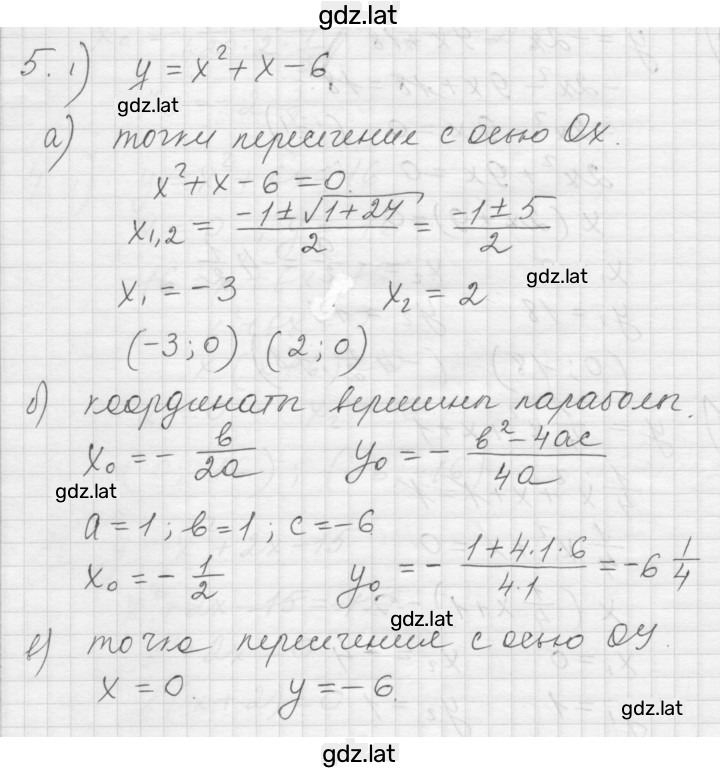 gdz.lat
5. 1) y = x² + x − 6.
gdz.lat
а) точки пересечение с осью Ox.
x² + x − 6 = 0.
x₁,₂ = (−1 ± √(1 + 24)) / 2 = (−1 ± 5) / 2
gdz.lat
x₁ = −3 x₂ = 2
(−3; 0) (2; 0)
б) координаты вершины параболы.
x₀ = − в / 2a y₀ = − (в² − 4ac) / 4a
gdz.lat
a = 1; в = 1; c = −6
x₀ = − 1/2 y₀ = − (1 + 4·1·6) / (4·1) = −6 1/4
gdz.lat
в) точка пересечения с осью OY.
x = 0. y = −6.
gdz.lat
gdz.lat